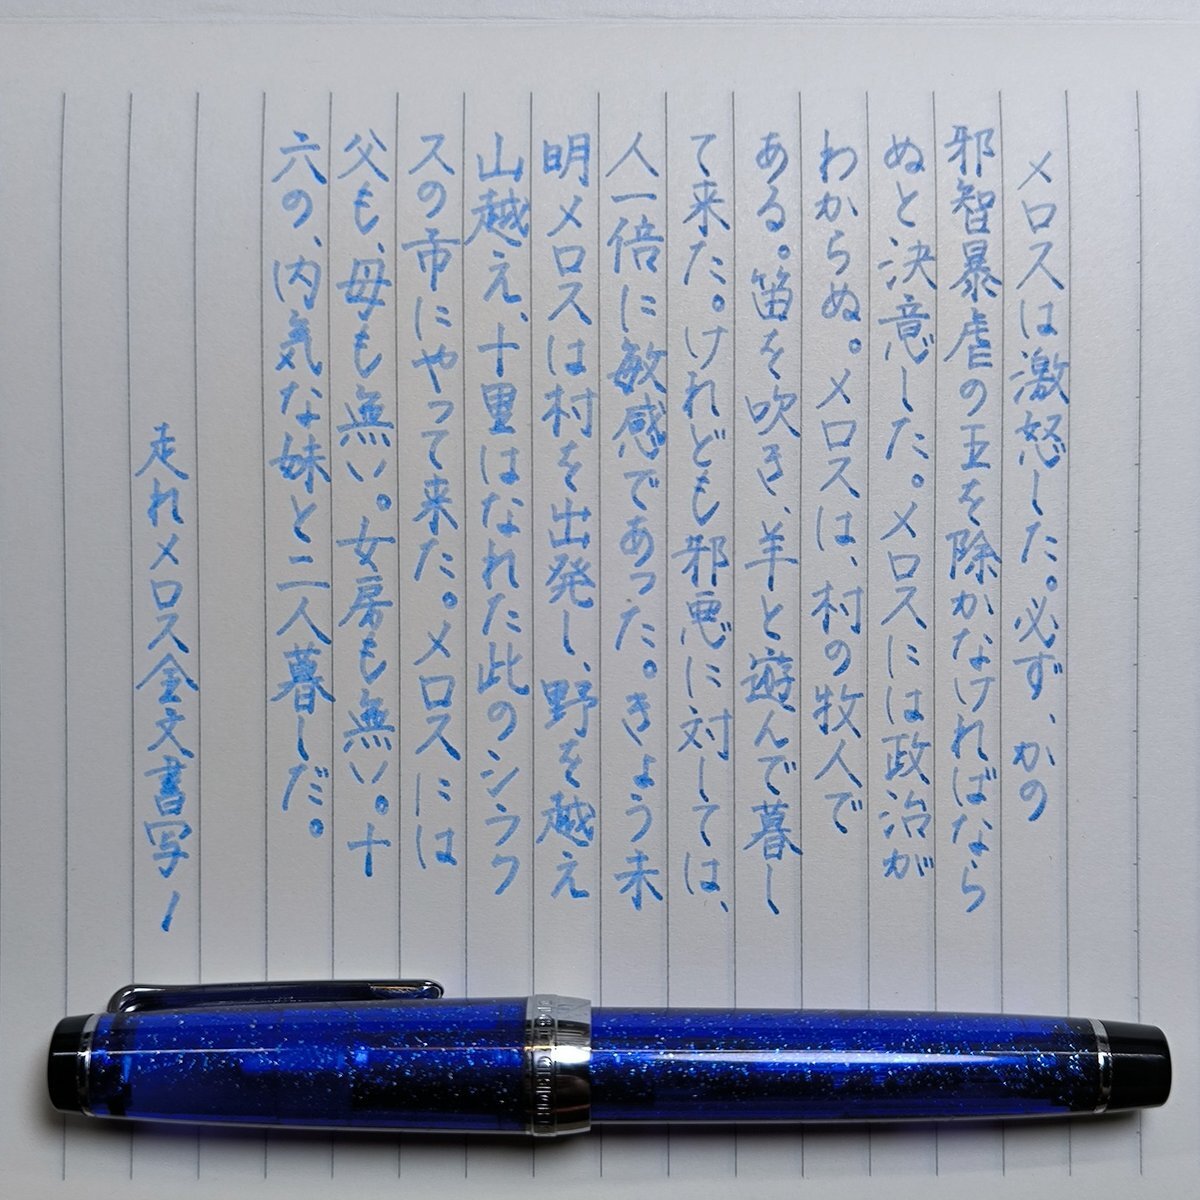 メロスは激怒した。必ず、かの
邪智暴虐の王を除かなければなら
ぬと決意した。メロスには政治が
わからぬ。メロスは、村の牧人で
ある。笛を吹き、羊と遊んで暮し
て来た。けれども邪悪に対しては、
人一倍に敏感であった。きょう未
明メロスは村を出発し、野を越え
山越え、十里はなれた此のシラク
スの市にやって来た。メロスには
父も、母も無い。女房も無い。十
六の、内気な妹と二人暮しだ。
走れメロス全文書写1